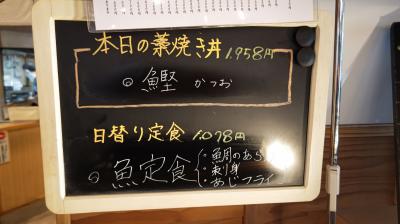 本日の藁焼き丼 1,958円
◎ 鰹 かつお
日替り定食 1,078円
◎ 魚定食
・鯛のあら
・刺身
・あじフライ